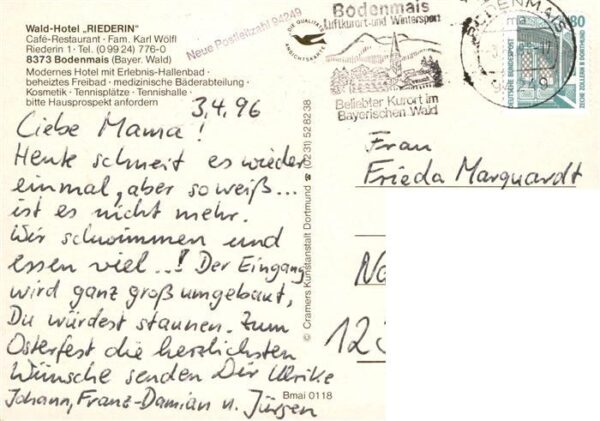 Wald-Hotel „RIEDERIN"
Café-Restaurant · Fam. Karl Wölfl
Riederin 1 · Tel. (0 99 24) 776-0
8373 Bodenmais (Bayer. Wald)
Modernes Hotel mit Erlebnis-Hallenbad ·
beheiztes Freibad · medizinische Bäderabteilung ·
Kosmetik · Tennisplätze · Tennishalle ·
bitte Hausprospekt anfordern
Neue Postleitzahl 94249
DIE QUALITÄTS
ANSICHTSKARTE
3.4.96
Liebe Mama!
Heute schneit es wieder
einmal, aber so weiß...
ist es nicht mehr.
Wir schwimmen und
essen viel...! Der Eingang
wird ganz groß umgebaut,
Du würdest staunen. Zum
Osterfest die herzlichsten
Wünsche senden Dir Ulrike
Johann, Franz-Damian u. Jürgen
© Cramers Kunstanstalt Dortmund (02 31) 52 82 38
Bmai 0118
Bodenmais
Luftkurort-und Wintersport
Beliebter Kurort im
Bayerischen Wald
80
DEUTSCHE BUNDESPOST
ZECHE ZOLLERN II DORTMUND
Frau
Frieda Marquardt
12